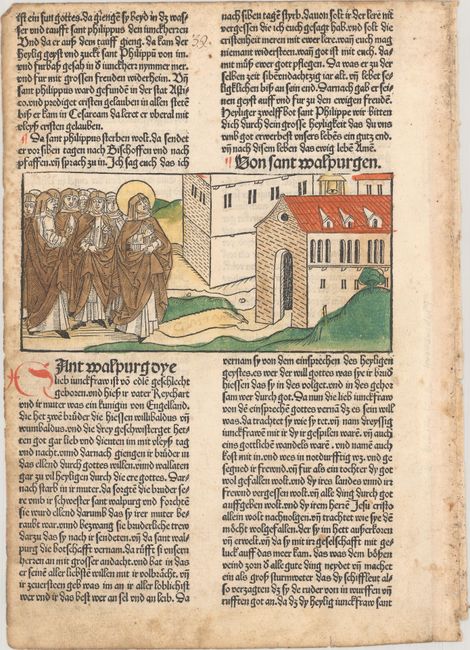 ist ein sun gottes. da giengē sy beyd in dz was
ser vnd taufft sant philippus den iunckherren
Vnd da er auß dem tauff gieng. da kam der
heylig geyst vnd zuckt sant Philippū von im.
vnd furbaß gesah in ō iunckherꝛ nymmer mer.
vnd fur mit grossen freuden widerheim. Vn̄
sant philippus ward gefundē in der stat Asti-
co. vnd prediget cristen gelauben in allen stetē
biß er kam in Cesaream da leret er vberal mit
vleyß cristen gelauben.
Da sant philippus sterben wolt. da sendet
er voꝛ siben tagen nach Bischoffen vnd nach
pfaffen. vn̄ sprach zu in. Ich sag euch das ich
nach siben tagen styrb. dauon solt ir der lere nit
vergessen die ich euch gesagt hab. vnd solt die
cristenheit meren mit ewer lere. wan̄ euch mag
niemant widersteen. wan̄ got ist mit euch. da-
mit muß ewer gott pflegen. Da was er zu der
selben zeit sibenvndachtzig iar alt. vn̄ lebet se-
ligklichen biß an sein end. Darnach gab er sei-
nen geyst auff vnd fur zu den ewigen freudē.
Heyliger zwelffbot sant Philippe wir bitten
dich durch dein grosse heyligkeit das du vns
vmb got erwerbest vnsers lebēs ein gutz end.
vn̄ nach disem leben das ewig lebē Amē.
Von sant walpurgen.
SAnt walpurg dye
lieb iunckfraw ist vō edlē geschlecht
geboren. vnd hieß ir vater Reychart
vnd ir muter was ein kunigin von Engelland.
die het zwē brüder die hiessen willibaldus vn̄
wunnibaldus. vnd die drey geschwistergeet het-
ten got gar lieb vnd dienten im mit vleyß tag
vnd nacht. vnnd darnach giengen ir brüder in
das ellend durch gottes willen. vnnd wallaten
gar zu vil heyligen durch die ere gottes. Dar-
nach starb in ir muter. da soꝛgtē die bruder se-
re vmb ir schwester sant walpurg vnd foꝛchtē
sie wurd ellend darumb das sy irer muter be-
raubt war. vnnd bezwang sie bruderliche trew
darzu das sy nach ir sendeten. vn̄ da sant wal-
purg die botschafft vernam. da rüfft si vnsern
herren an mit grosser andacht. vnd bat in das
er seinē aller liebstē willen mit ir volbꝛecht. vn̄
ir zeuersteen geb was im an ir aller löblichist
wer vnd ir das best an sel vnd an leib. Da
vernam sy von dem einsprechen des heyligen
geystes. es wer der will gottes was sye ir bꝛud
hiessen das sy in des volget. vnd in des gehoꝛ
sam wer durch got. Da nun die lieb iunckfraw
von dē einspꝛechē gottes vernā dz es sein will
was. da trachtet sy wie sy tet. vn̄ nam dreyssig
iunckfrawē mit ir dy ir gespilen warē. vn̄ auch
eins gotlichē wandels warē. vnd namē auch
kost mit in. vnd wes in notdurfftig wz. vnd ge
segned ir freund. vn̄ fur als ein tochter dy got
wol gefallen wolt. vnd dy ires lands vnnd irꝛ
freund vergessen wolt. vn̄ alle ding durch got
auffgeben wolt. vnd dy irem herrē Jesu cristo
allein wolt nachuolgen. vn̄ trachtet wie sye dē
möcht wolgefallen. der sy im hett außerkoꝛen
vn̄ erwelt. vn̄ da sy mit irꝛ geselschafft mit ge-
luck auff das meer kam. das was dem bößen
veind zoꝛn ō alle gute ding neydet vn̄ machet
ein als groß sturmweter das dy schiffleut al-
so verzagten dz sy de ruder von in wurffen vn̄
rufften got an. da dz dy heylig iunckfraw sant